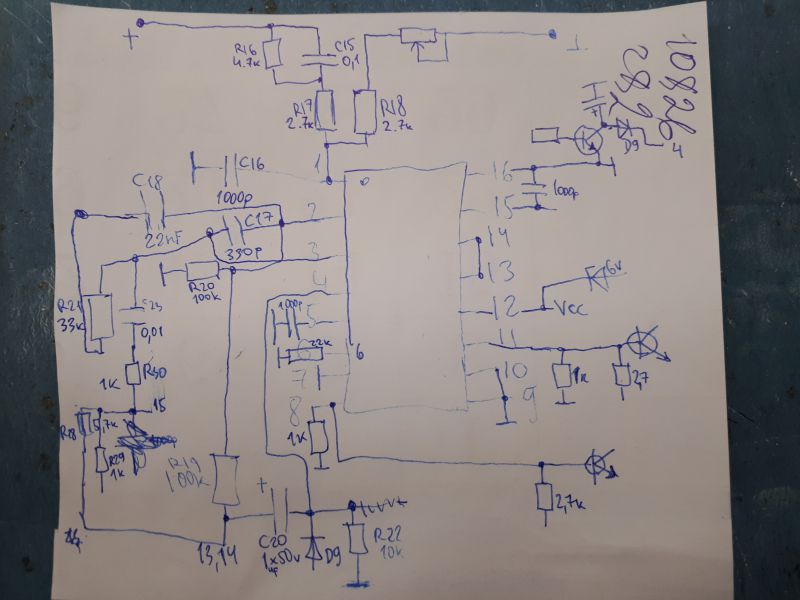 +
R16
4.7K
C15
0,1
1
10826
282
R17
2.7K
R18
2.7K
D9
4
1
C16
1000p
16
1000p
15
C18
22nF
2
C17
330p
14
3
13
R20
100K
4
6V
R21
33K
C23
0,01
1000p
5
12
Vcc
22K
6
11
1K
R30
7
10
1K
2,7
15
8
9
R28
5,7K
1K
R29
1K
R19
100K
+
2,7K
13,14
C20
1x50v
D9
R22
10K